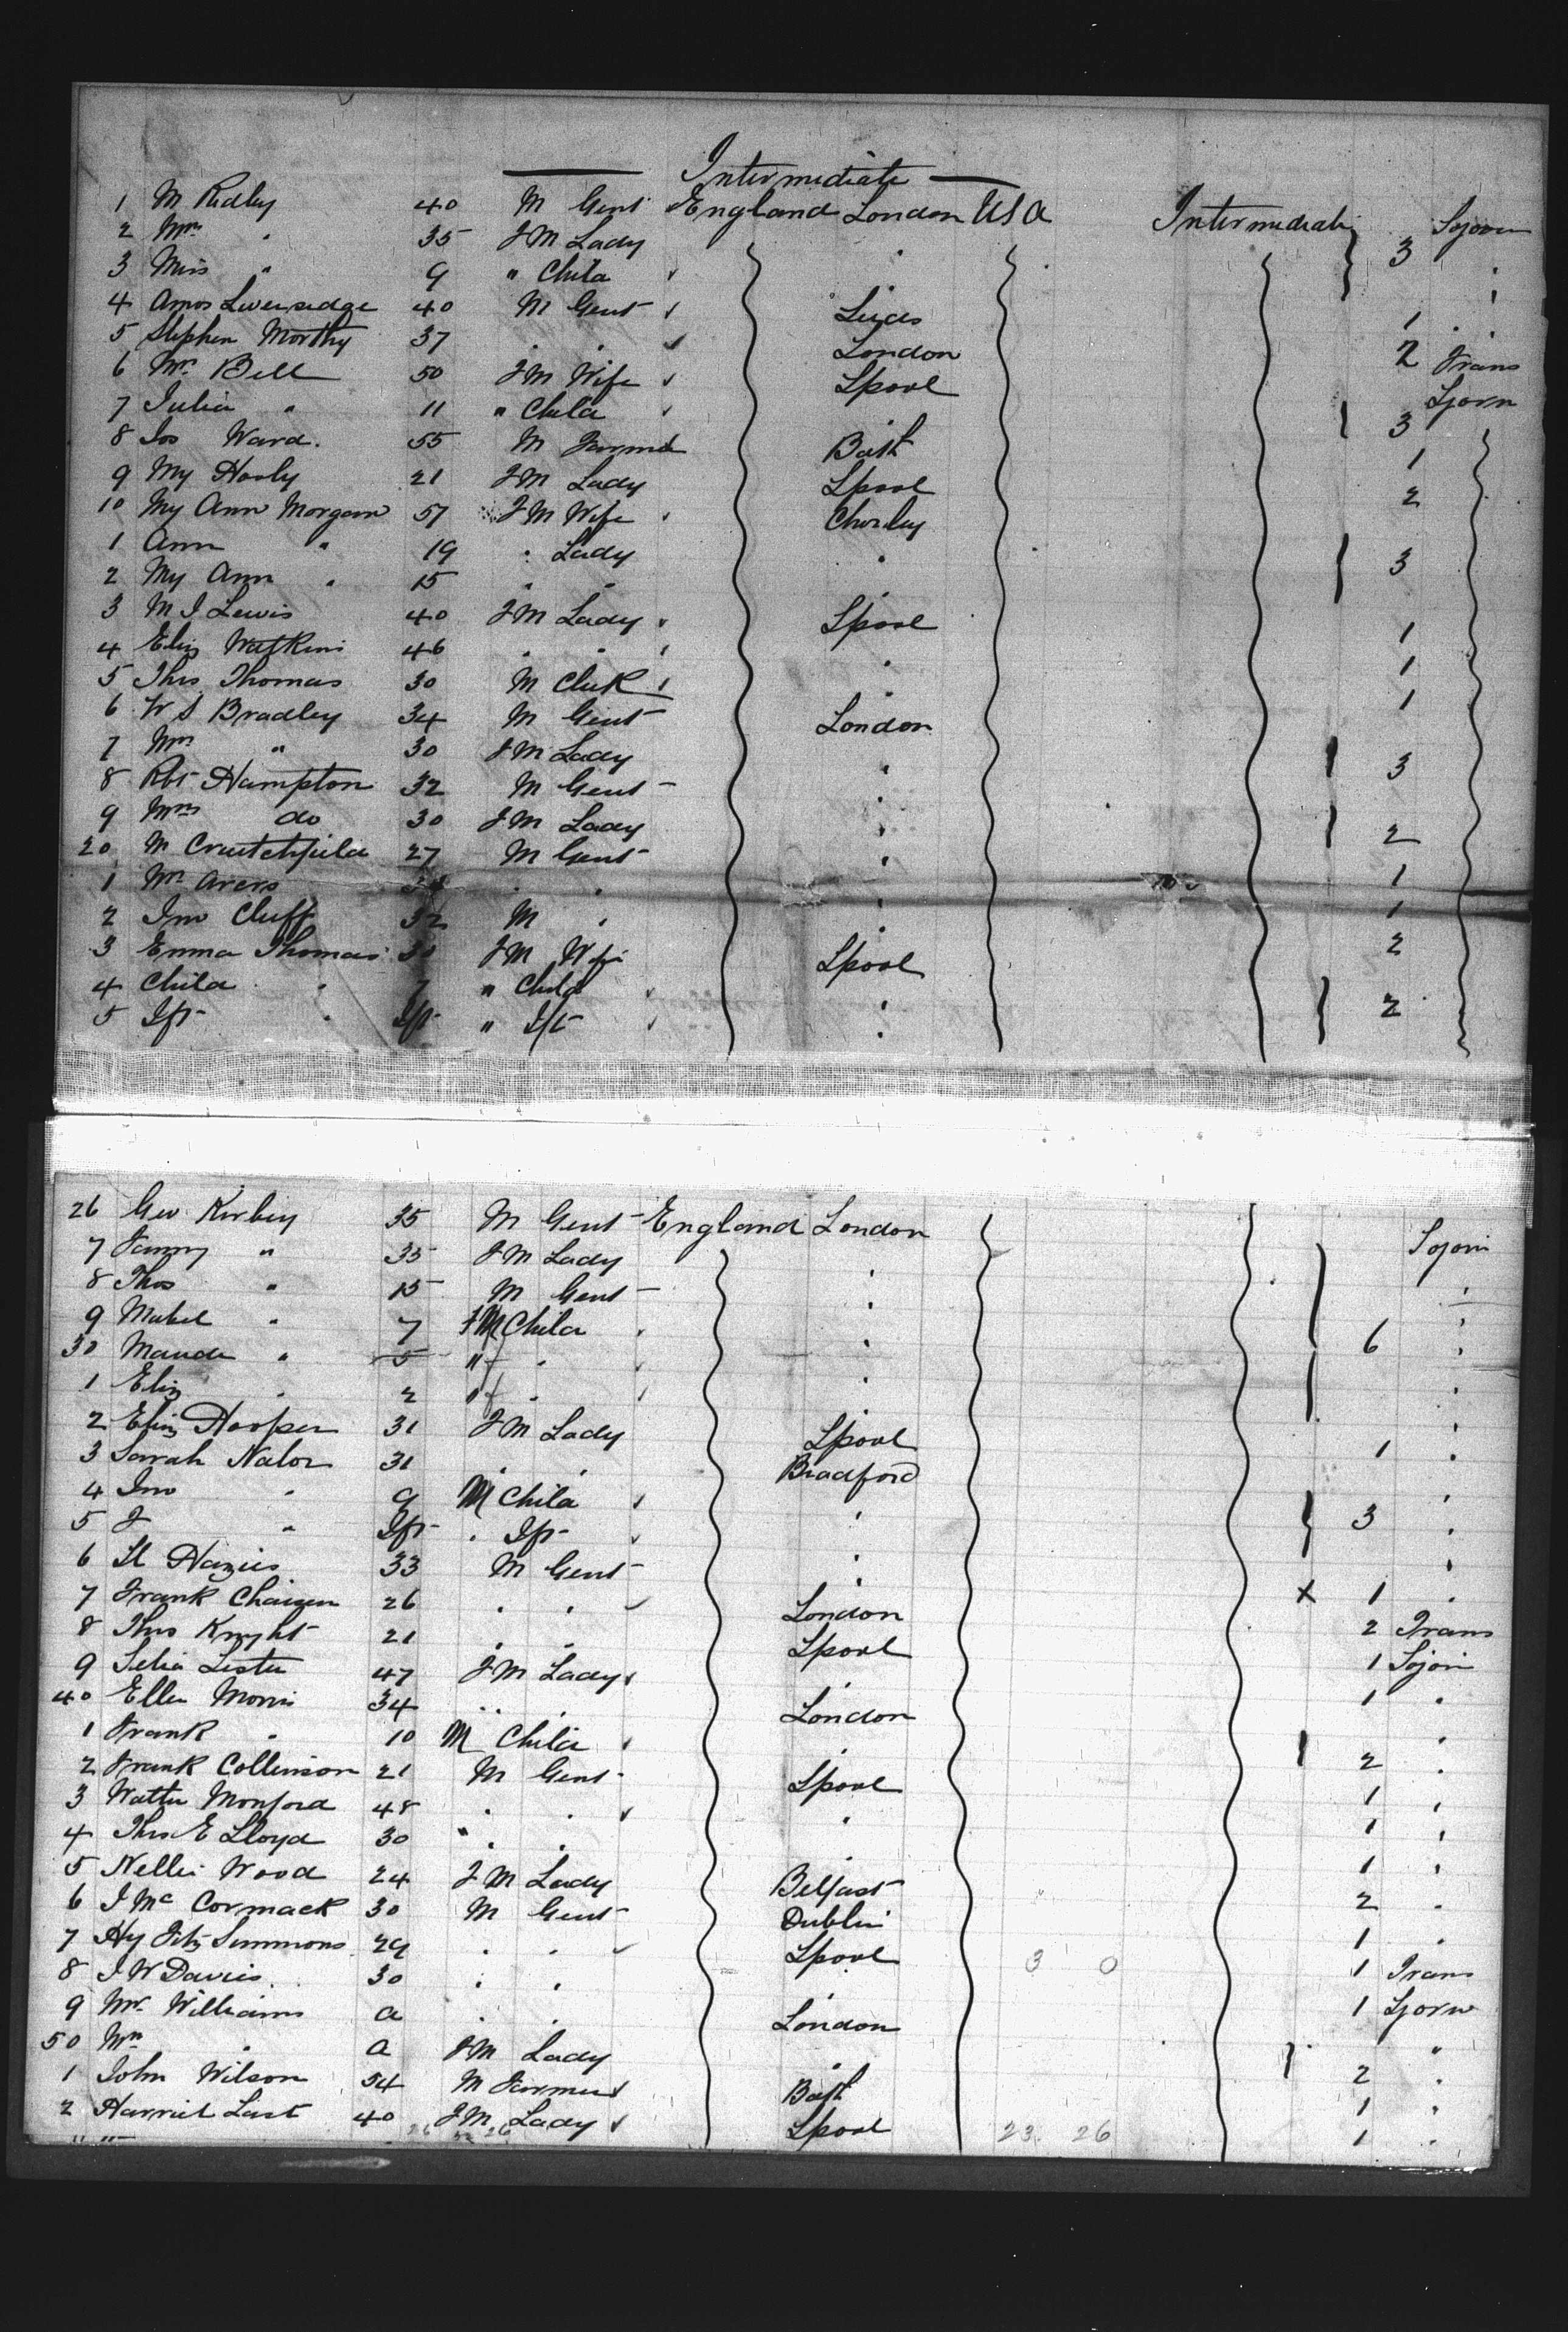 Intermediate
1 M Ridley 40 M Gent England London USA Intermediate Sojourn
2 Mrs " 35 F M Lady " 3 "
3 Miss " 9 " Child "
4 Amos Liversedge 40 M Gent Leeds 1 "
5 Stephen Morthy 37 " " London 2 Trans
6 Mrs Bell 50 F M Wife Lpool Sjorn
7 Julia " 11 " Child 3
8 Jos Ward. 55 M Farmer Bath 1
9 My Hooly 21 F M Lady Lpool 2
10 My Ann Morgan 57 F M Wife Chorley
1 Ann " 19 " Lady " 3
2 My Ann " 15 " " "
3 M J Lewis 40 F M Lady Lpool 1
4 Eliz Watkins 46 " " " 1
5 Thos Thomas 30 M Clerk " 1
6 W S Bradley 34 M Gent London
7 Mrs " 30 F M Lady " 3
8 Robt Hampton 32 M Gent "
9 Mrs do 30 F M Lady " 2
20 M Crutchfield 27 M Gent " 1
1 Mr Avers " " " 1
2 Jno Cluff 32 M " " 2
3 Emma Thomas 30 F M Wife Lpool
4 Child " 7 " Child " 2
5 Ift " Ift " Ift "
26 Geo Kirbey 35 M Gent England London Sojorn
7 Fanny " 35 F M Lady " "
8 Thos " 15 M Gent " "
9 Mabel " 7 F M Child " 6 "
30 Maude " 5 " f " " "
1 Eliz " 2 " f " " "
2 Eliz Hooper 31 F M Lady Lpool 1 "
3 Sarah Nalor 31 " " Bradford "
4 Jno " 9 M Child " 3 "
5 J " Ift " Ift " "
6 33 M Gent x 1 "
7 Frank 26 " " London 2 Trans
8 Thos Knight 21 " " Lpool 1 Sojorn
9 Selia Lester 47 F M Lady 1 "
40 Ellen Morris 34 " " London "
1 Frank " 10 M Child " 2 "
2 Frank Collinson 21 M Gent Lpool 1 "
3 Watter Monford 48 " " " 1 "
4 Thos E Lloyd 30 " " " 1 "
5 Nellie Wood 24 F M Lady Belfast 2 "
6 J McCormack 30 M Gent Dublin 1 "
7 Hy Fitz Simmons 29 " " Lpool 3 0 1 Trans
8 J W Davies 30 " " " 1 Sjorn
9 Mr Williams a " " London "
50 Mrs " a F M Lady " 2 "
1 John Wilson 54 M Farmer Bath 1 "
2 Harriet Last 40 F M Lady Lpool 1 "
26 26 23 26